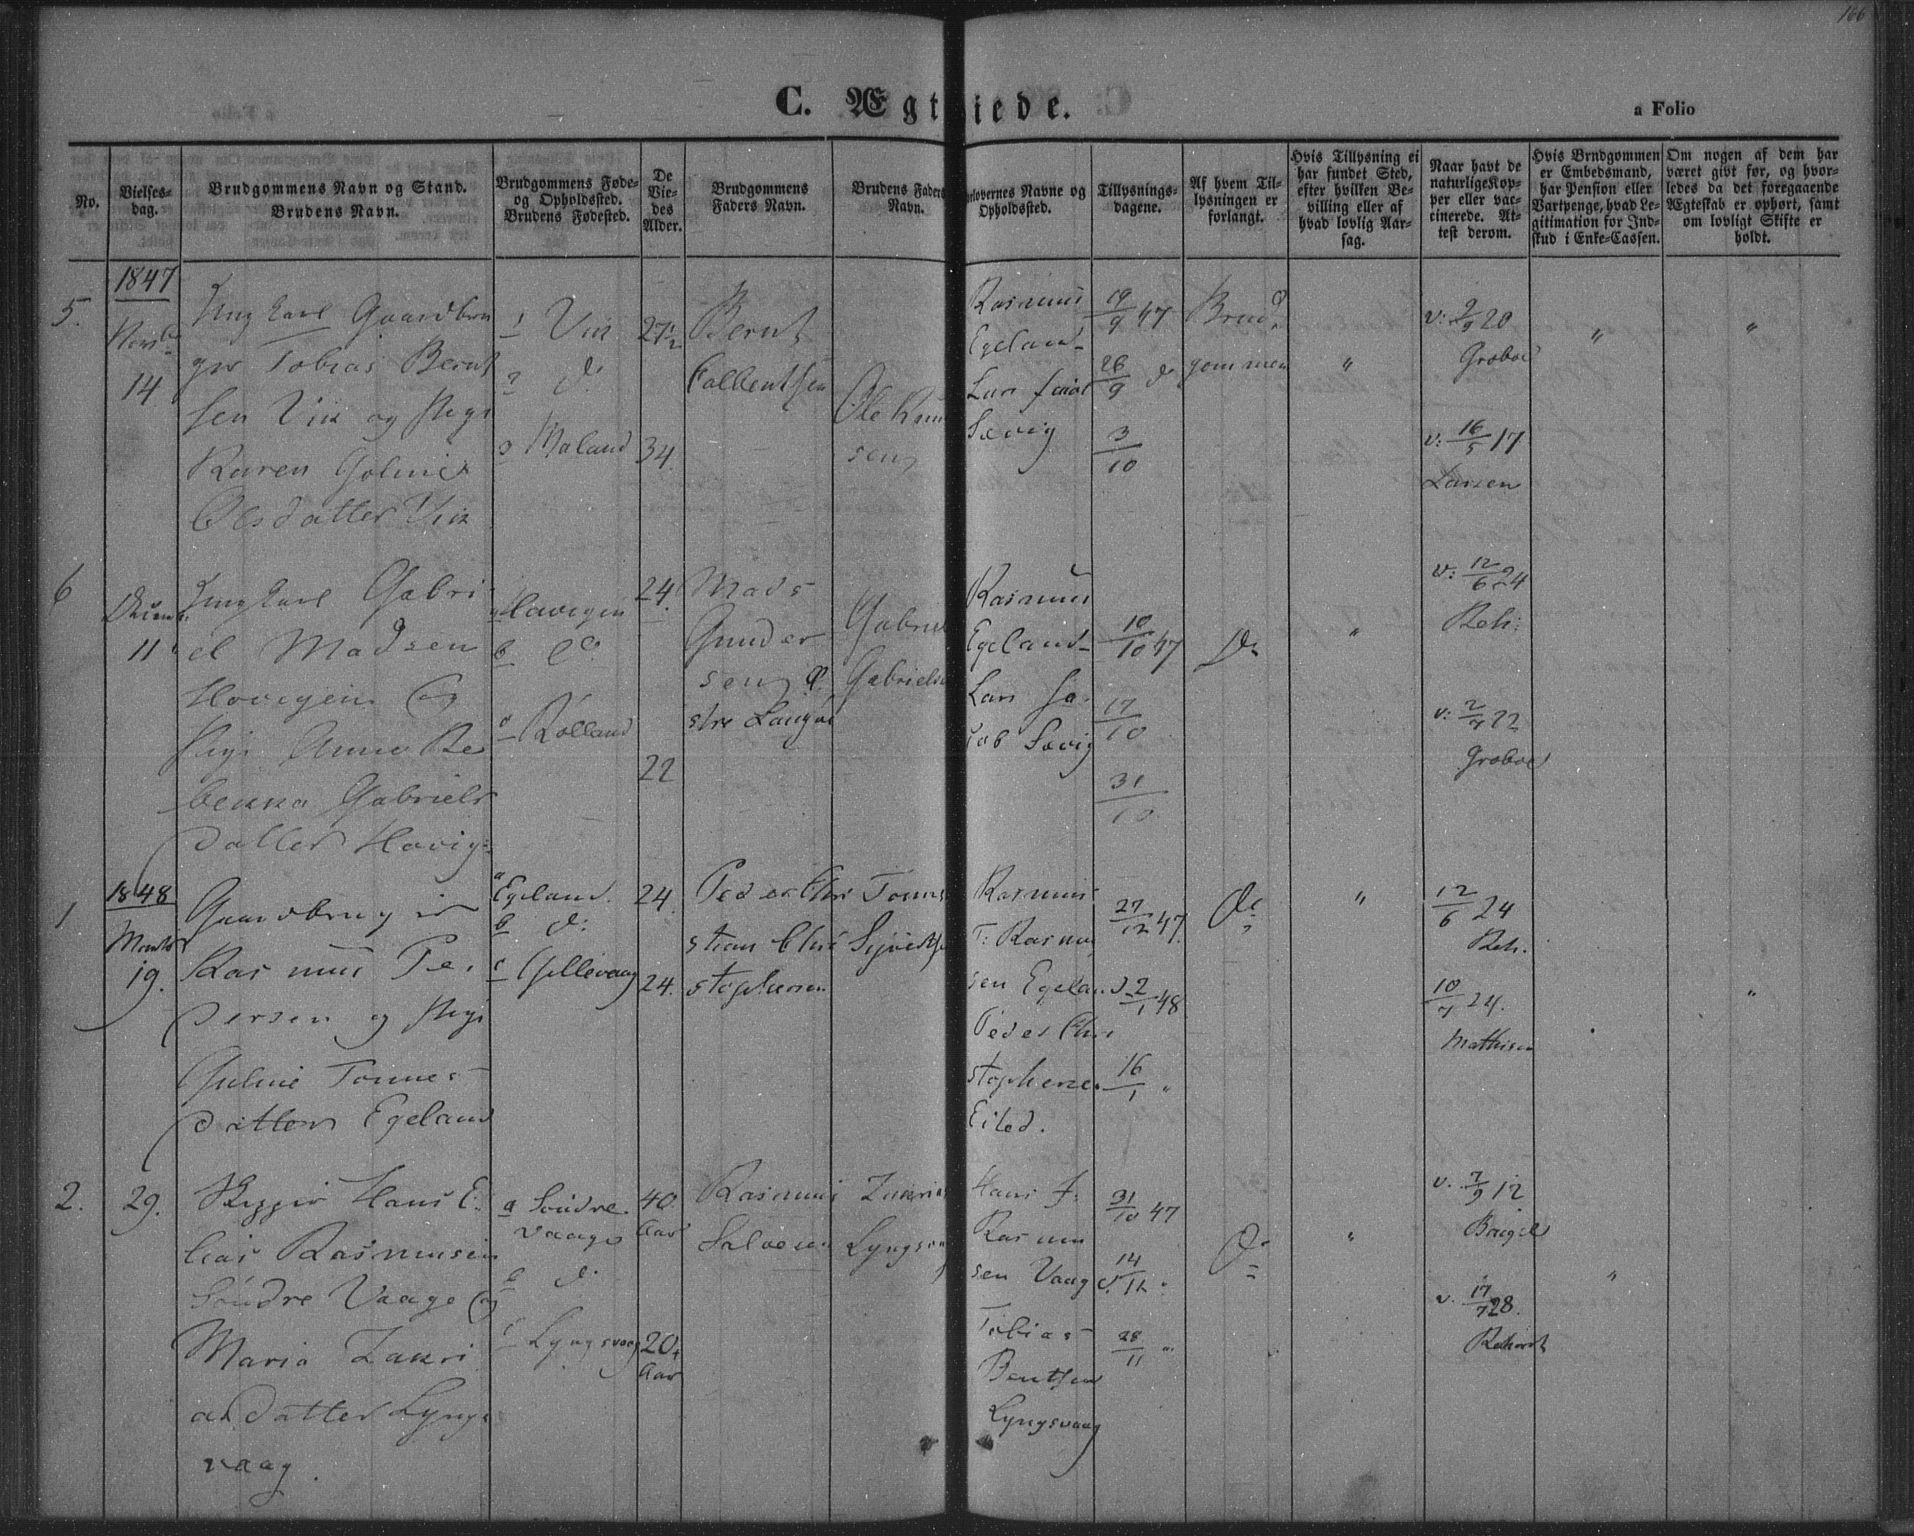 166
C. Ægt iede.
a Folio
No.
Vielses-
dag.
Brudgommens Navn og Stand.
Brudens Navn.
Brudgommens Føde-
og Opholdssted.
Brudens Fødested.
De
Vie-
des
Alder.
Brudgommens
Faders Navn.
Brudens Faders
Navn.
rlovernes Navne og
Opholdssted.
Tillysnings-
dagene.
Af hvem Til-
lysningen er
forlangt.
Hvis Tillysning ei
har fundet Sted,
efter hvilken Be-
villing eller af
hvad lovlig Aar-
sag.
Naar havt de
naturlige Kop-
per eller vac-
cinerede. At-
test derom.
Hvis Brudgommen
er Embedsmand,
har Pension eller
Vartpenge, hvad Le-
gitimation for Ind-
skud i Enke-Cassen.
Om nogen af dem har
været givt før, og hvor-
ledes da det foregaaende
Ægteskab er ophørt, samt
om lovligt Skifte er
holdt.
1847
5.
14
Ungkarl Gaardbru
ger Tobias Bernt
sen Vik og Pige
Karen
Olsdatter Vik
Vik
d:
27½
34
Bernt
Ole Knu
sen
Rasmus
Egeland
Lars
Sævig
19/9 47
26/9 d
3/10
Brud
gommen
"
v: 2/9 20
Groboe
v: 16/5 17
Larsen
"
"
6
11
Ungkarl Gabri
el Madsen
Hovegen og
Pige Anne Re
bekka Gabriels
datter Hovig
b d:
Rølland
24.
22
Mads
Gunder
sen
Gabriel
Gabriels
Rasmus
Egeland
Lars Ja
cob Sævig
10/10 47
17/10
31/10
D:
"
v: 12/6 24
Reh:
v: 2/7 22
Groboe
1848
1
Marts
19.
Gaardbruger
Rasmus Pe
dersen og Pige
Tønnes
datter Egeland
a Egeland.
b d:
c
24.
24.
Peder Chri
stian Chri
stophersen
Tønnes
Rasmus
T: Rasmus
sen Egeland
Peder Chri
stophersen
Eiled.
27/12 47
2/1 48
16/1 "
D:
"
12/6 24
Reh.
10/7 24.
Mathisen
"
2.
29.
Skipper Hans E
lias Rasmusen
Søndre Vaage og
Maria Zakri
asdatter Lyngs
vaag.
a Søndre
vaage
b d:
c Lyngsvaag
40
Aar
20.
Aar
Rasmus
Salvesen
Zakrias
Lyngsv
Hans
Rasmu
sen Vaag
Tobias
Bentsen
Lyngsvaag
31/10 47
14/11 "
28/11 "
D:
"
v. 7/9 12
v. 17/7 28.
"